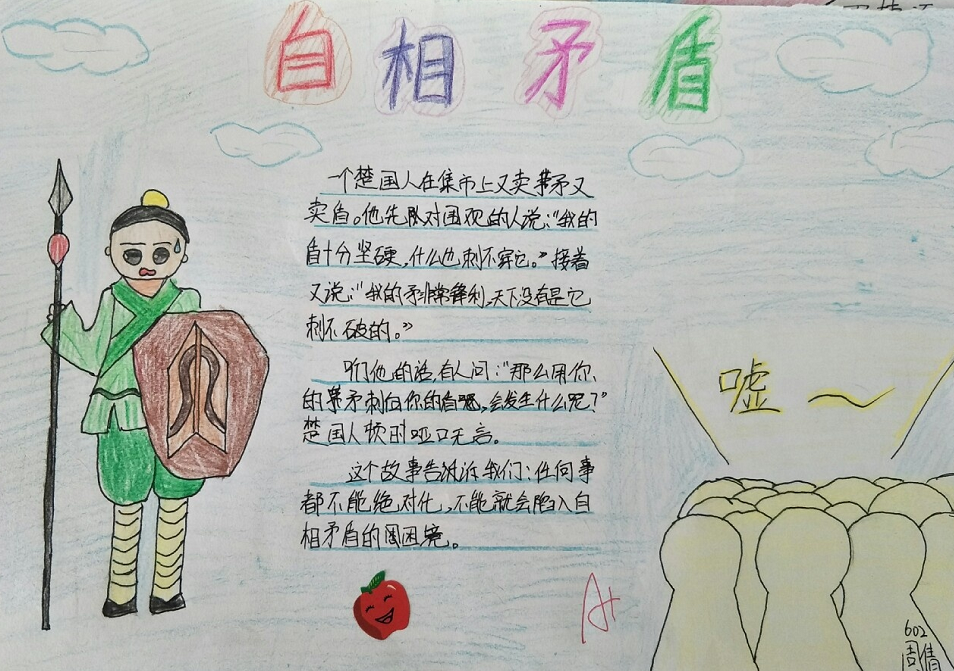 自相矛盾
一个楚国人在集市上又卖茅矛又
卖盾。他先队对围观的人说:“我的
盾十分坚硬,什么也刺不穿它。”接着
又说:“我的矛非常锋利,天下没有是它
刺不破的。”
听们他的话,有人问:“那么用你
的茅矛刺向你的盾呢,会发生什么呢?”
楚国人顿时哑口无言。
这个故事告诉我们:任何事
都不能绝对化,不能就会陷入自
相矛盾的困境。
嘘~
A+
602
周倩